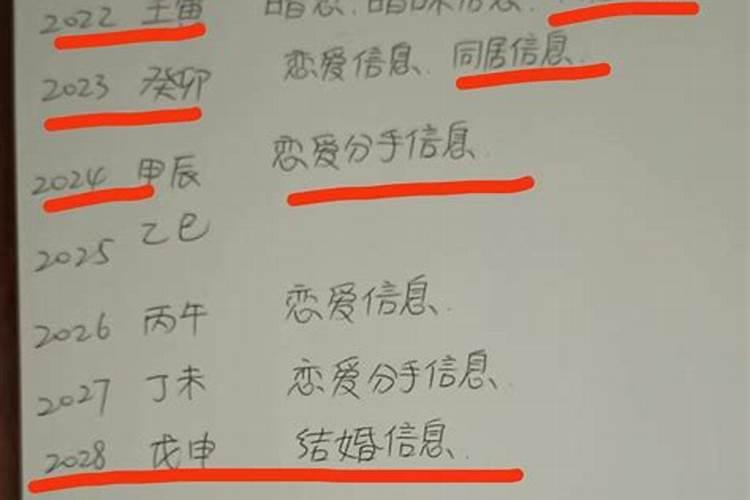 2022 壬寅 暗恋、暧昧信息.
2023 癸卯 恋爱信息、同居信息.
2024 甲辰 恋爱分手信息.
2025 乙巳
2026 丙午 恋爱信息.
2027 丁未 恋爱分手信息.
2028 戊申 结婚信息.